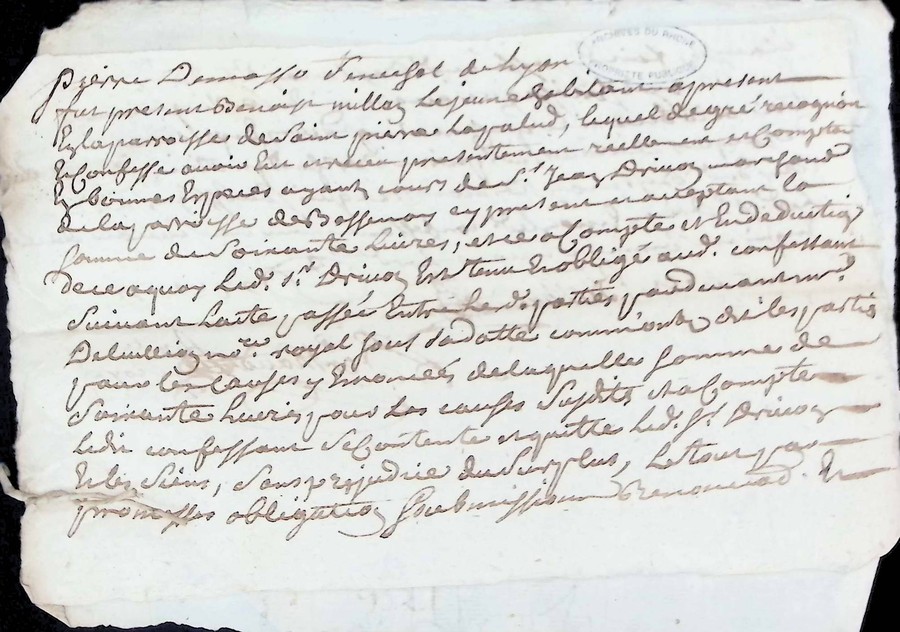 ARCHIVES DU RHÔNE
PROPRIÉTÉ PUBLIQUE
pierre Demasso Senechal de Lyon
fut present Benoist millan Le jeune habitant apresent
En laparroisse de Saint pierre Lapalud, lequel de gré recognoit
Et Confesse avoir Eut et receu presentement reellement et Comptent
En bonnes Especes ayant cours de Sr. Jean Drivon marchand
de laparroisse de Bessenay cy present et acceptant la
somme de Soixante Livres, et ce a Compte et En deduction
de ce aquoy Led. Sr. Drivon Est tenu Et obligé aud. confessant
Suivant Lacte passée Entre Lesd. parties pardevant me.
royal Sous Sa datte comm'ont dit les parties
pour les Causes y Enoncées de laquelle Somme de
Soixante Livres pour Les causes Susdites et a Compte
Ledit confessant Se Contente et quitte Led. Sr. Drivon
Et les Siens, Sans prejudice du Surplus, Le tout par
promesses obligation Soubmission Renonciaon. Et